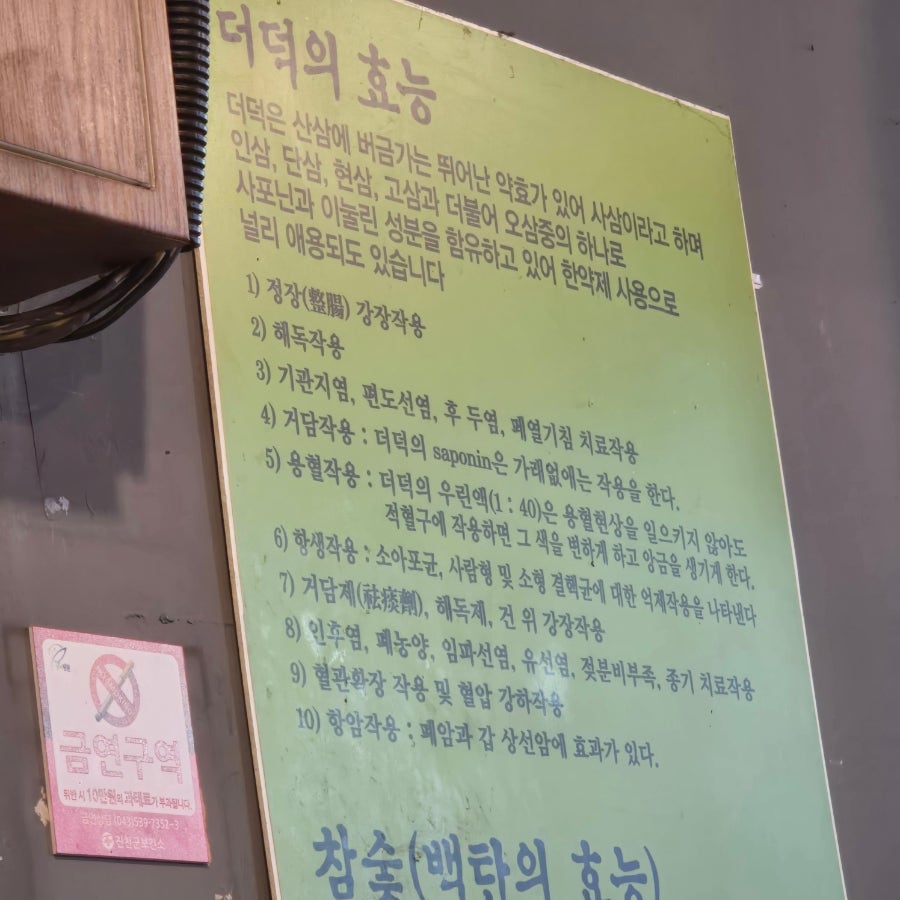 더덕의 효능
더덕은 산삼에 버금가는 뛰어난 약효가 있어 사삼이라고 하며
인삼, 단삼, 현삼, 고삼과 더불어 오삼중의 하나로
사포닌과 이눌린 성분을 함유하고 있어 한약제 사용으로
널리 애용되도 있습니다
1) 정장(整腸) 강장작용
2) 해독작용
3) 기관지염, 편도선염, 후 두염, 폐열기침 치료작용
4) 거담작용 : 더덕의 saponin은 가래없에는 작용을 한다.
5) 용혈작용 : 더덕의 우린액(1 : 40)은 용혈현상을 일으키지 않아도
적혈구에 작용하면 그 색을 변하게 하고 앙금을 생기게 한다.
6) 항생작용 : 소아포균, 사람형 및 소형 결핵균에 대한 억제작용을 나타낸다
7) 거담제(祛痰劑), 해독제, 건 위 강장작용
8) 인후염, 폐농양, 임파선염, 유선염, 젖분비부족, 종기 치료작용
9) 혈관확장 작용 및 혈압 강하작용
10) 항암작용 : 폐암과 갑 상선암에 효과가 있다.
참숯(백탄의 효능)
금연구역
위반 시 10만원의 과태료가 부과됩니다.
금연상담 (043)539-7352~3
진천군보건소